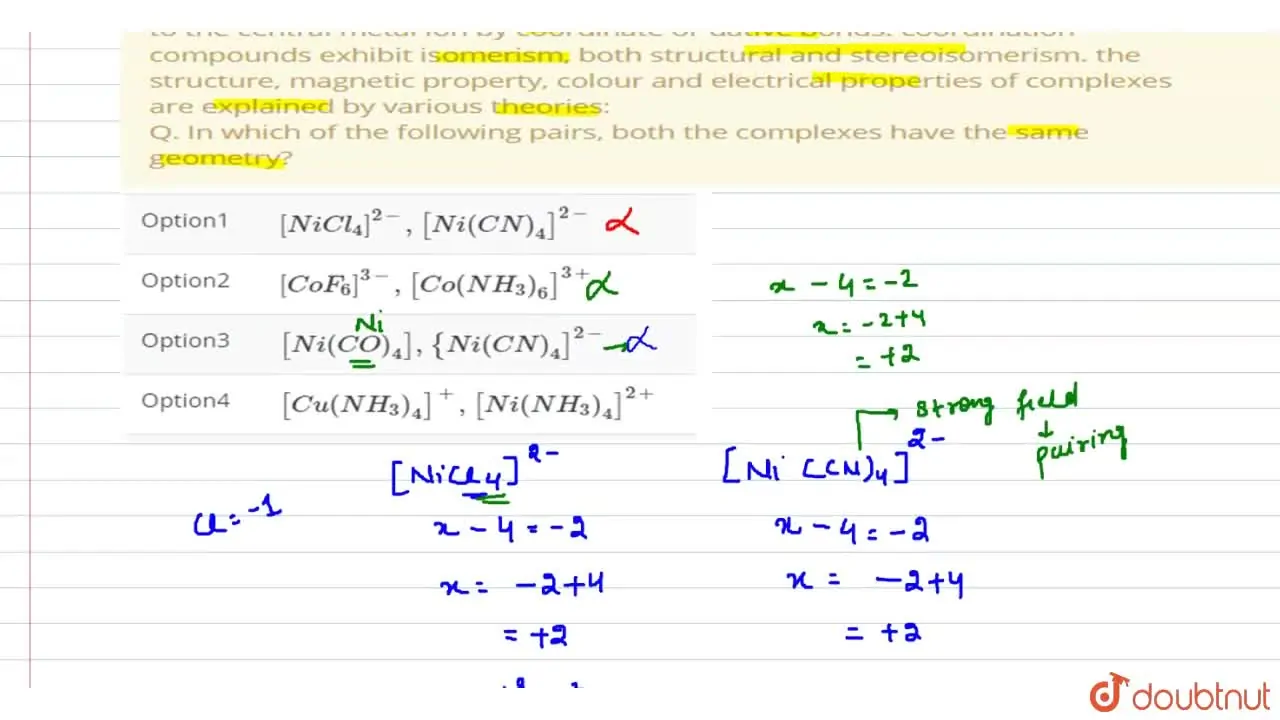 to the central metal ion by coordinate or dative bonds. coordination
compounds exhibit isomerism, both structural and stereoisomerism. the
structure, magnetic property, colour and electrical properties of complexes
are explained by various theories:
Q. In which of the following pairs, both the complexes have the same
geometry?
Option1 [NiCl₄]²⁻, [Ni(CN)₄]²⁻ α
Option2 [CoF₆]³⁻, [Co(NH₃)₆]³⁺ α
Ni
Option3 [Ni(CO)₄], {Ni(CN)₄]²⁻ → α
Option4 [Cu(NH₃)₄]⁺, [Ni(NH₃)₄]²⁺
x - 4 = -2
x = -2+4
= +2
strong field
↓
pairing
[NiCl₄]²⁻
[Ni (CN)₄]²⁻
Cl = -1
x - 4 = -2
x = -2+4
= +2
x - 4 = -2
x = -2+4
= +2
doubtnut